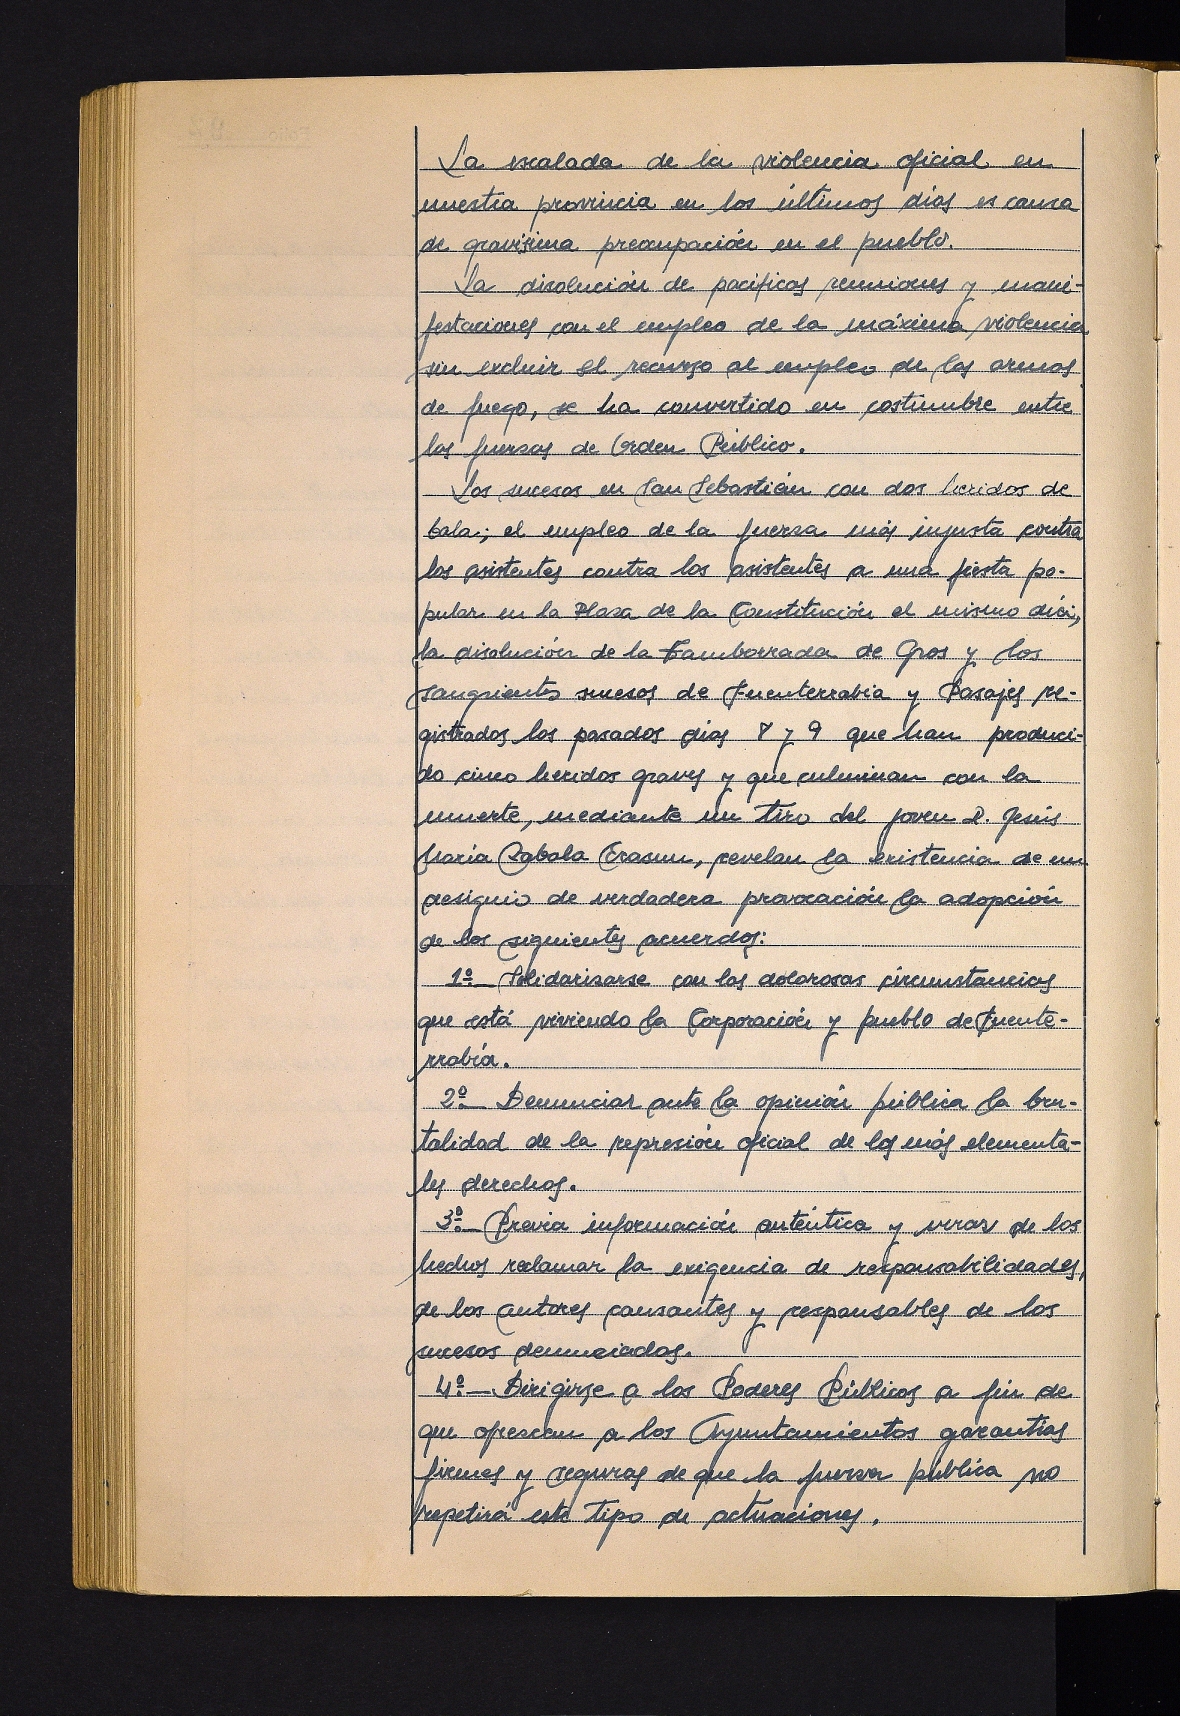 La escalada de la violencia oficial en
nuestra provincia en los últimos días es causa
de gravísima preocupación en el pueblo.
La disolución de pacíficas reuniones y mani-
festaciones con el empleo de la máxima violencia
sin excluir el recurso al empleo de las armas
de fuego, se ha convertido en costumbre entre
las fuerzas de Orden Público.
Los sucesos en San Sebastián con dos heridos de
bala; el empleo de la fuerza más injusta contra
los asistentes contra los asistentes a una fiesta po-
pular en la Plaza de la Constitución el mismo día,
la disolución de la Tamborrada de Gros y los
sangrientos sucesos de Fuenterrabía y Pasajes re-
gistrados los pasados días 8 y 9 que han produci-
do cinco heridos graves y que culminan con la
muerte, mediante un tiro del joven D. Jesús
María Zabala Erasun, revelan la existencia de un
designio de verdadera provocación la adopción
de los siguientes acuerdos:
1º— Solidarizarse con las dolorosas circunstancias
que está viviendo la Corporación y pueblo de Fuente-
rrabía.
2º— Denunciar ante la opinión pública la bru-
talidad de la represión oficial de los más elementa-
les derechos.
3º— Previa información auténtica y veraz de los
hechos reclamar la exigencia de responsabilidades,
de los autores causantes y responsables de los
sucesos denunciados.
4º— Dirigirse a los Poderes Públicos a fin de
que ofrezcan a los Ayuntamientos garantías
firmes y seguras de que la fuerza pública no
repetirá este tipo de actuaciones.